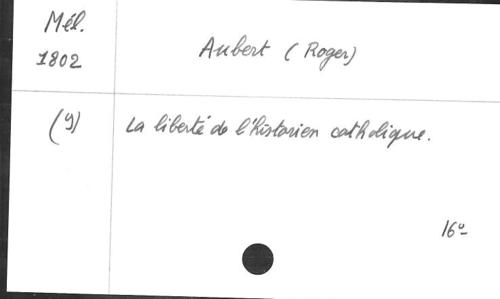 Mél.
1802
Aubert (Roger)
(9)
La liberté de l'historien catholique.
16º